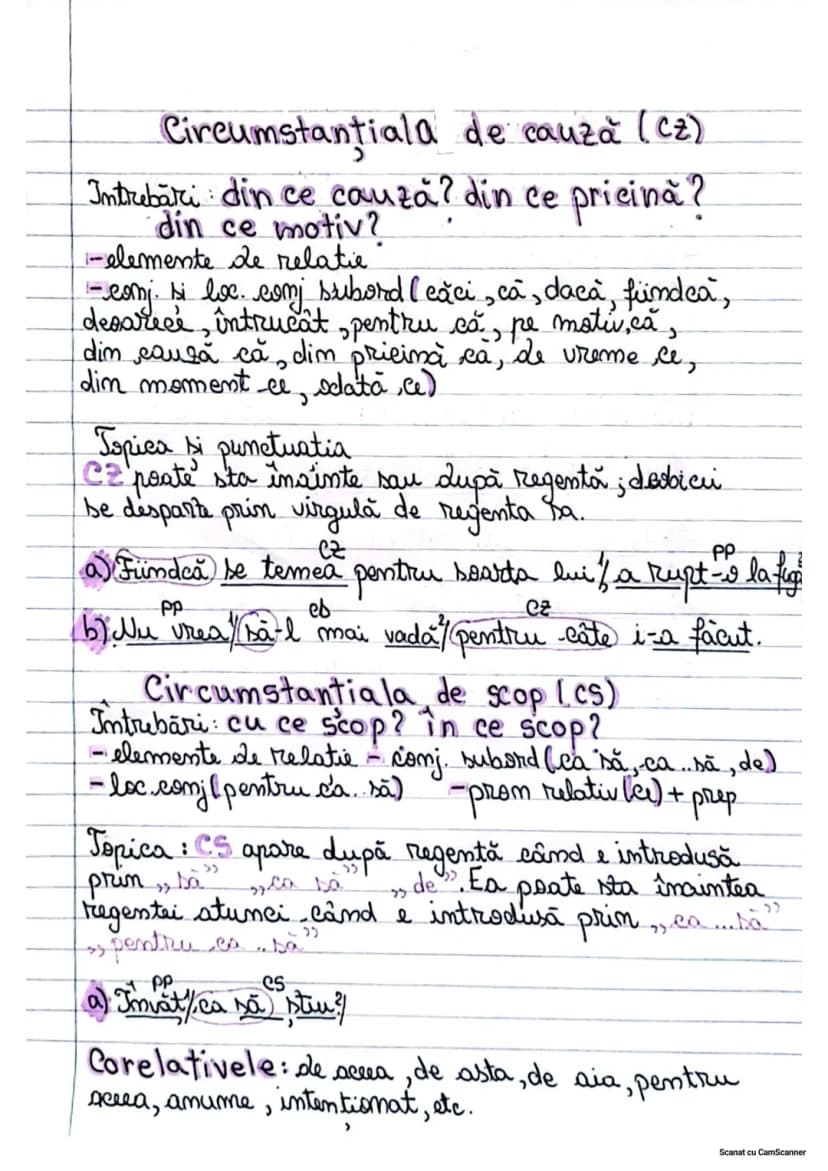 Circumstanțiala de cauză (CZ)
Întrebări: din ce cauză? din ce pricină?
din ce motiv?
-elemente de relatie
-conj. si loc. conj subord (căci, că, dacă, fiindcă,
deoarece, întrucât, pentru că, pe motiv că,
din cauză că, din pricină că, de vreme ce,
din moment ce, odată ce)
Topica si punctuatia
CZ poate sta înainte sau după regentă; desbicei
se desparte prin virgulă de regenta sa.
CZ PP
a) Fiindcă se temea pentru soarta lui1/ a rupt-o la fugă
PP cb CZ
b) Nu vrea1/ să-l mai vadă2/ pentru câte i-a făcut.
Circumstanțiala de scop (CS)
Întrebări: cu ce scop? în ce scop?
- elemente de relatie - conj. subord (ca să, ca..să, de)
- loc.conj (pentru ca..să) -pron relativ (ce) + prep
Topica: CS apare după regentă când e introdusă
prin „să” „ca să” „de”. Ea poate sta înaintea
regentei atunci când e introdusă prin „ca...să”
„pentru ca..să”
PP CS
a) Învăț1/ ca să știu2/
Corelativele: de aceea, de asta, de aia, pentru
aceea, anume, intenționat, etc.
Scanat cu CamScanner